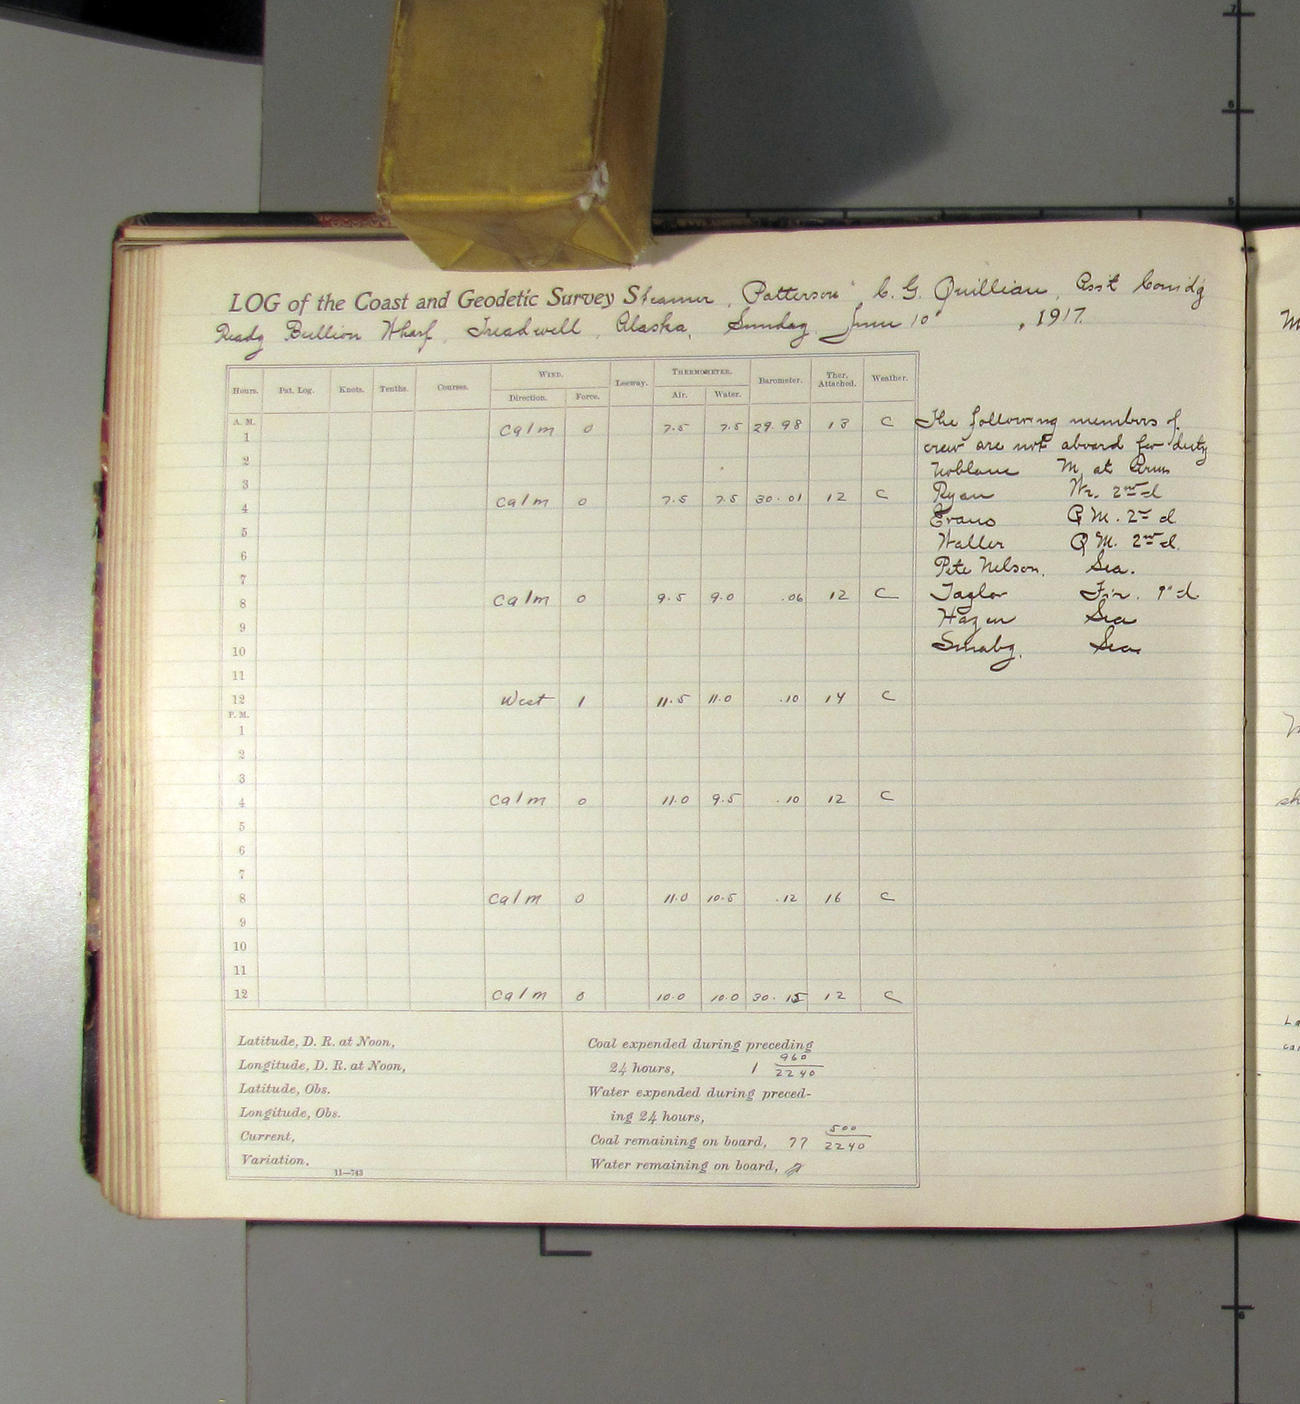 LOG of the Coast and Geodetic Survey Steamer "Patterson" C. G. Quillian, Ass't Comdg
Ready Bullion Wharf, Treadwell, Alaska, Sunday June 10", 1917.
Hours. Pat. Log. Knots. Tenths. Courses. WIND. Leeway. THERMOMETER. Barometer. Ther. Attached. Weather.
Direction. Force. Air. Water.
A. M.
1 Calm 0 7.5 7.5 29.98 13 C
2
3
4 Calm 0 7.5 7.5 30.01 12 C
5
6
7
8 Calm 0 9.5 9.0 .06 12 C
9
10
11
12 West 1 11.5 11.0 .10 14 C
P. M.
1
2
3
4 Calm 0 11.0 9.5 .10 12 C
5
6
7
8 Calm 0 11.0 10.5 .12 16 C
9
10
11
12 Calm 0 10.0 10.0 30.15 12 C
The following members of
crew are not aboard for duty
Noblane M. at Arms
Ryan Wr. 2nd cl
Evans Q M. 2nd cl
Waller Q M. 2nd cl.
Pete Nelson. Sea.
Taylor Fir. 1" cl
Hagen Sea
Smaby. Sea
Latitude, D. R. at Noon,
Longitude, D. R. at Noon,
Latitude, Obs.
Longitude, Obs.
Current,
Variation,
11—743
Coal expended during preceding
24 hours, 1 960/2240
Water expended during preced-
ing 24 hours,
Coal remaining on board, 77 500/2240
Water remaining on board,